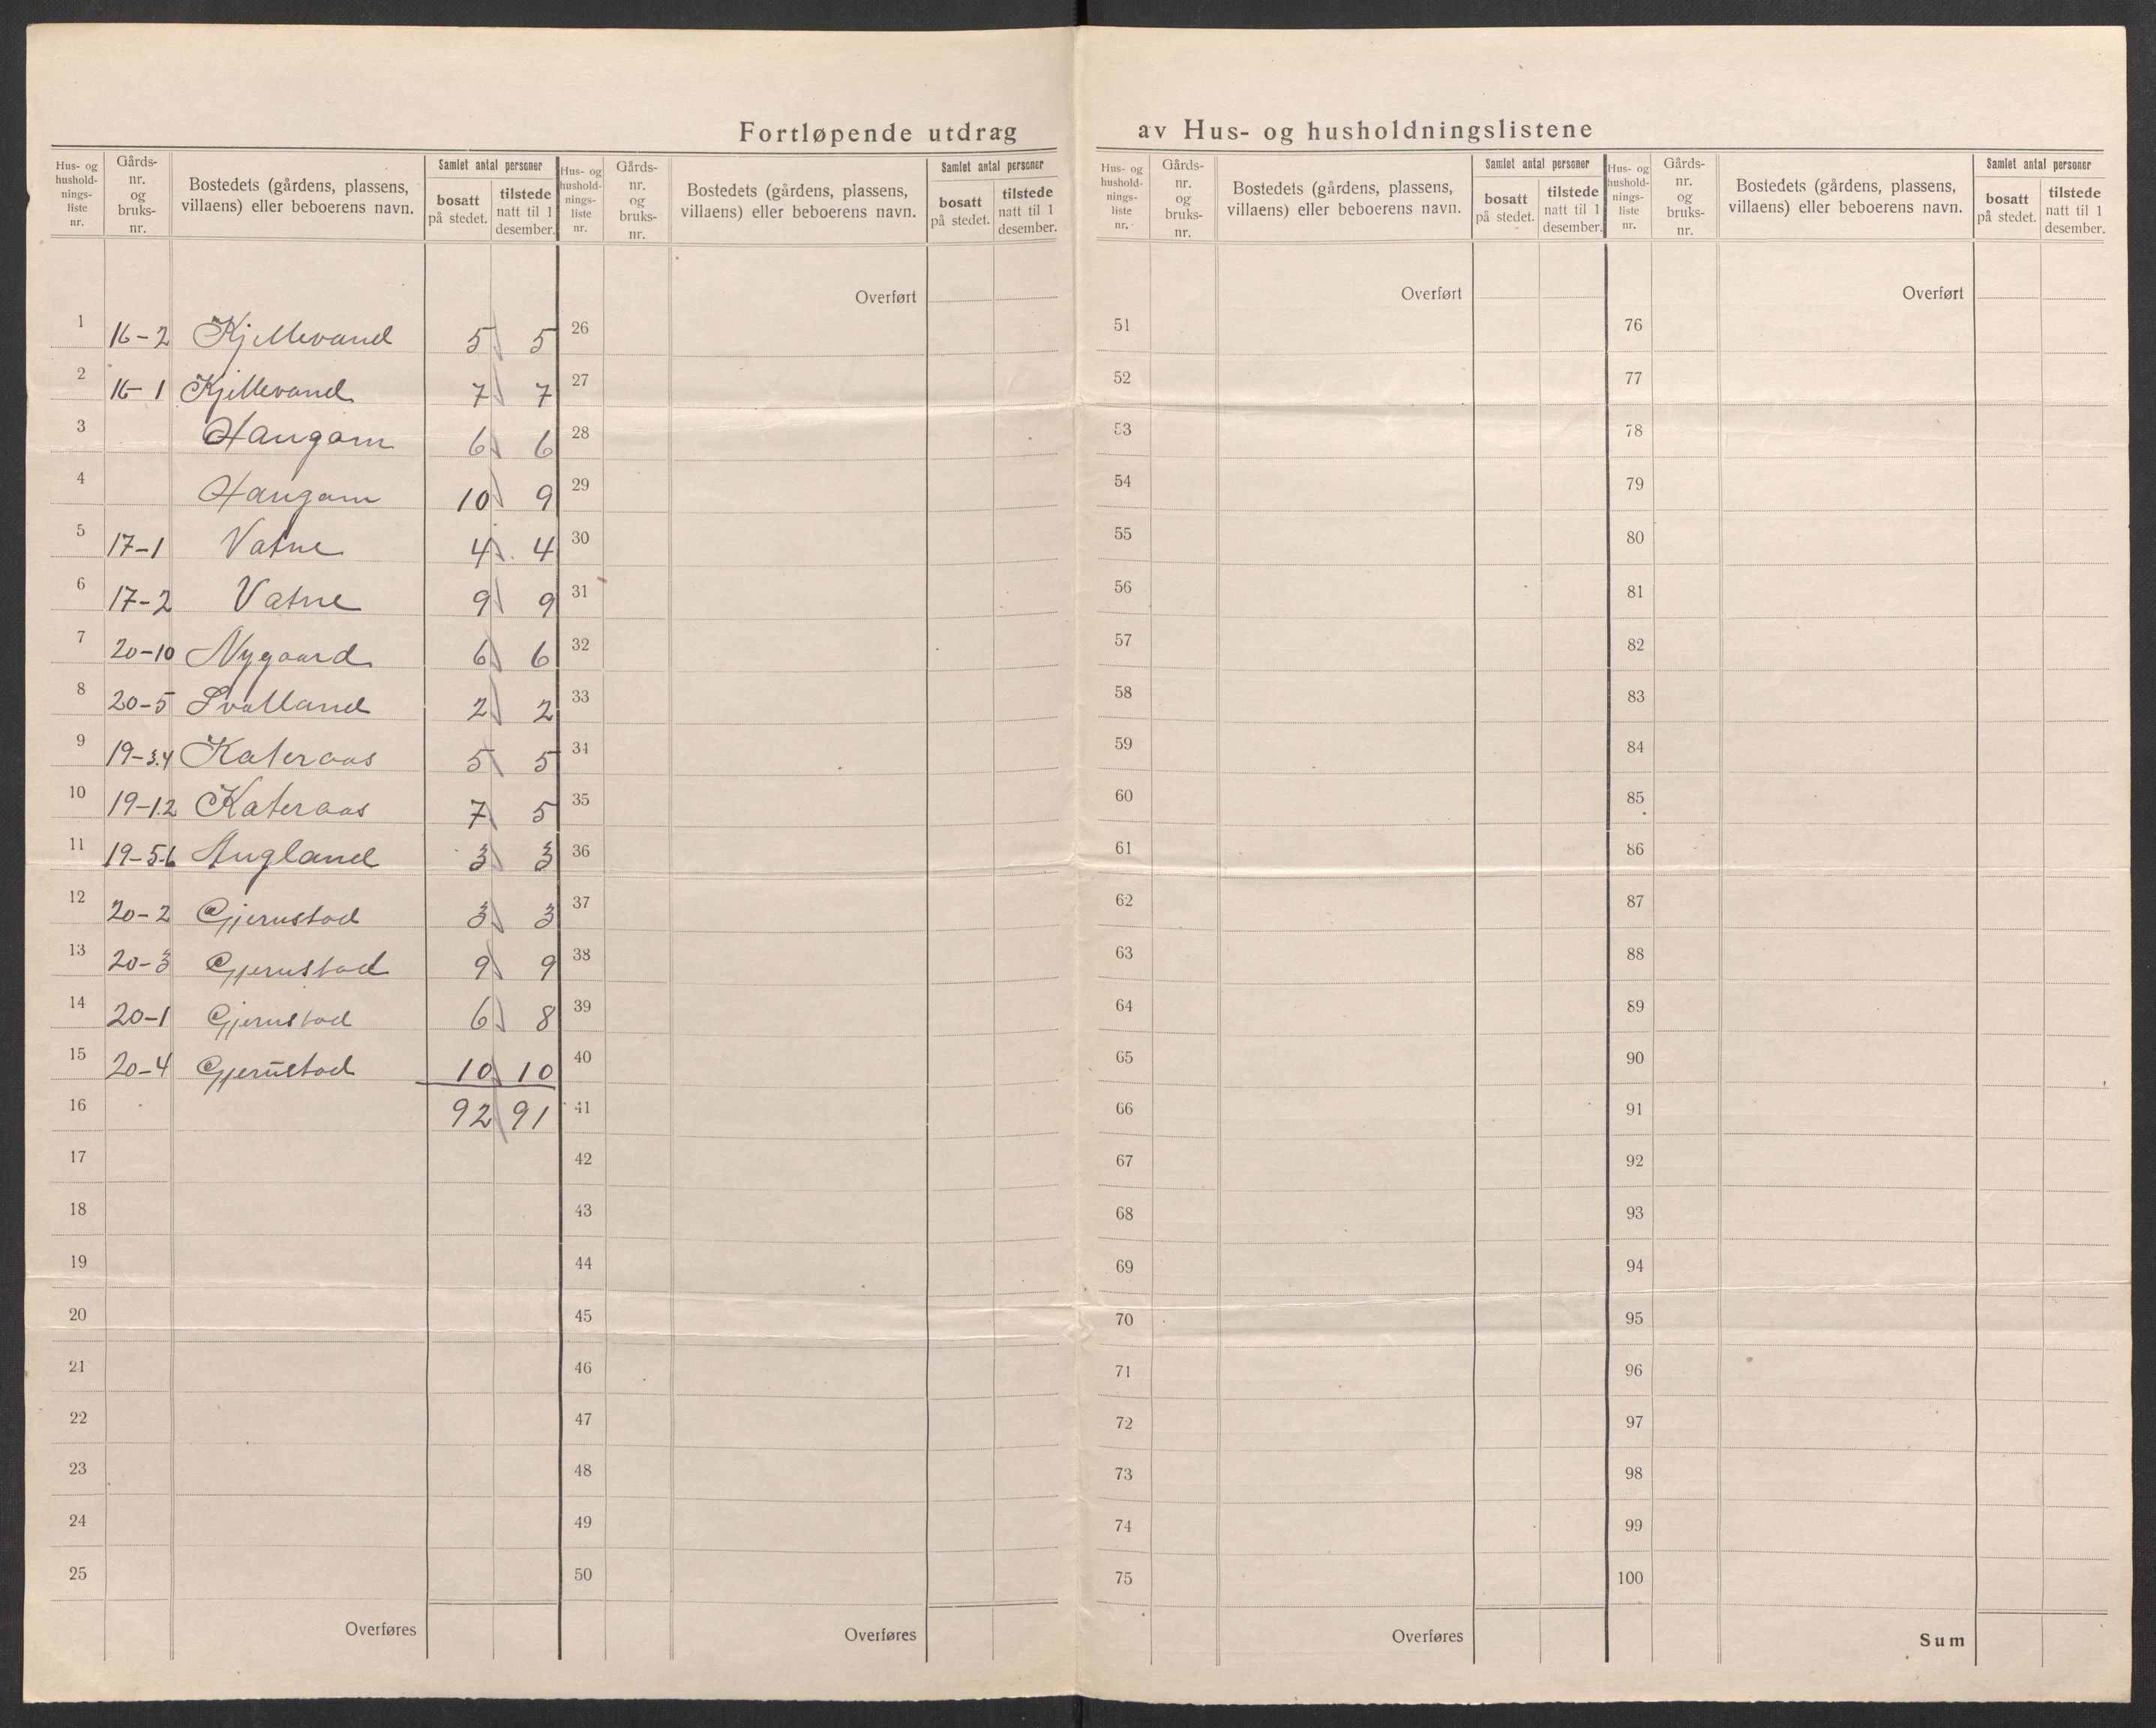 Fortløpende utdrag av Hus- og husholdningslistene
Hus- og hushold-nings-liste nr. Gårds-nr. og bruks-nr. Bostedets (gårdens, plassens, villaens) eller beboerens navn. Samlet antal personer bosatt på stedet. tilstede natt til 1 desember.
1 16-2 Kjellevand 5 5
2 16-1 Kjellevand 7 7
3 Haugom 6 6
4 Haugom 10 9
5 17-1 Vatne 4 4
6 17-2 Vatne 9 9
7 20-10 Nygaard 6 6
8 20-5 Svalland 2 2
9 19-3.4 Kateraas 5 5
10 19-1.2 Kateraas 7 5
11 19-5-6 Augland 3 3
12 20-2 Gjerustad 3 3
13 20-3 Gjerustad 9 9
14 20-1 Gjerustad 6 8
15 20-4 Gjerustad 10 10
16 92 91
17
18
19
20
21
22
23
24
25
Overføres
Hus- og hushold-nings-liste nr. Gårds-nr. og bruks-nr. Bostedets (gårdens, plassens, villaens) eller beboerens navn. Samlet antal personer bosatt på stedet. tilstede natt til 1 desember.
Overført
26
27
28
29
30
31
32
33
34
35
36
37
38
39
40
41
42
43
44
45
46
47
48
49
50
Overføres
Hus- og hushold-nings-liste nr. Gårds-nr. og bruks-nr. Bostedets (gårdens, plassens, villaens) eller beboerens navn. Samlet antal personer bosatt på stedet. tilstede natt til 1 desember.
Overført
51
52
53
54
55
56
57
58
59
60
61
62
63
64
65
66
67
68
69
70
71
72
73
74
75
Overføres
Hus- og hushold-nings-liste nr. Gårds-nr. og bruks-nr. Bostedets (gårdens, plassens, villaens) eller beboerens navn. Samlet antal personer bosatt på stedet. tilstede natt til 1 desember.
Overført
76
77
78
79
80
81
82
83
84
85
86
87
88
89
90
91
92
93
94
95
96
97
98
99
100
Sum